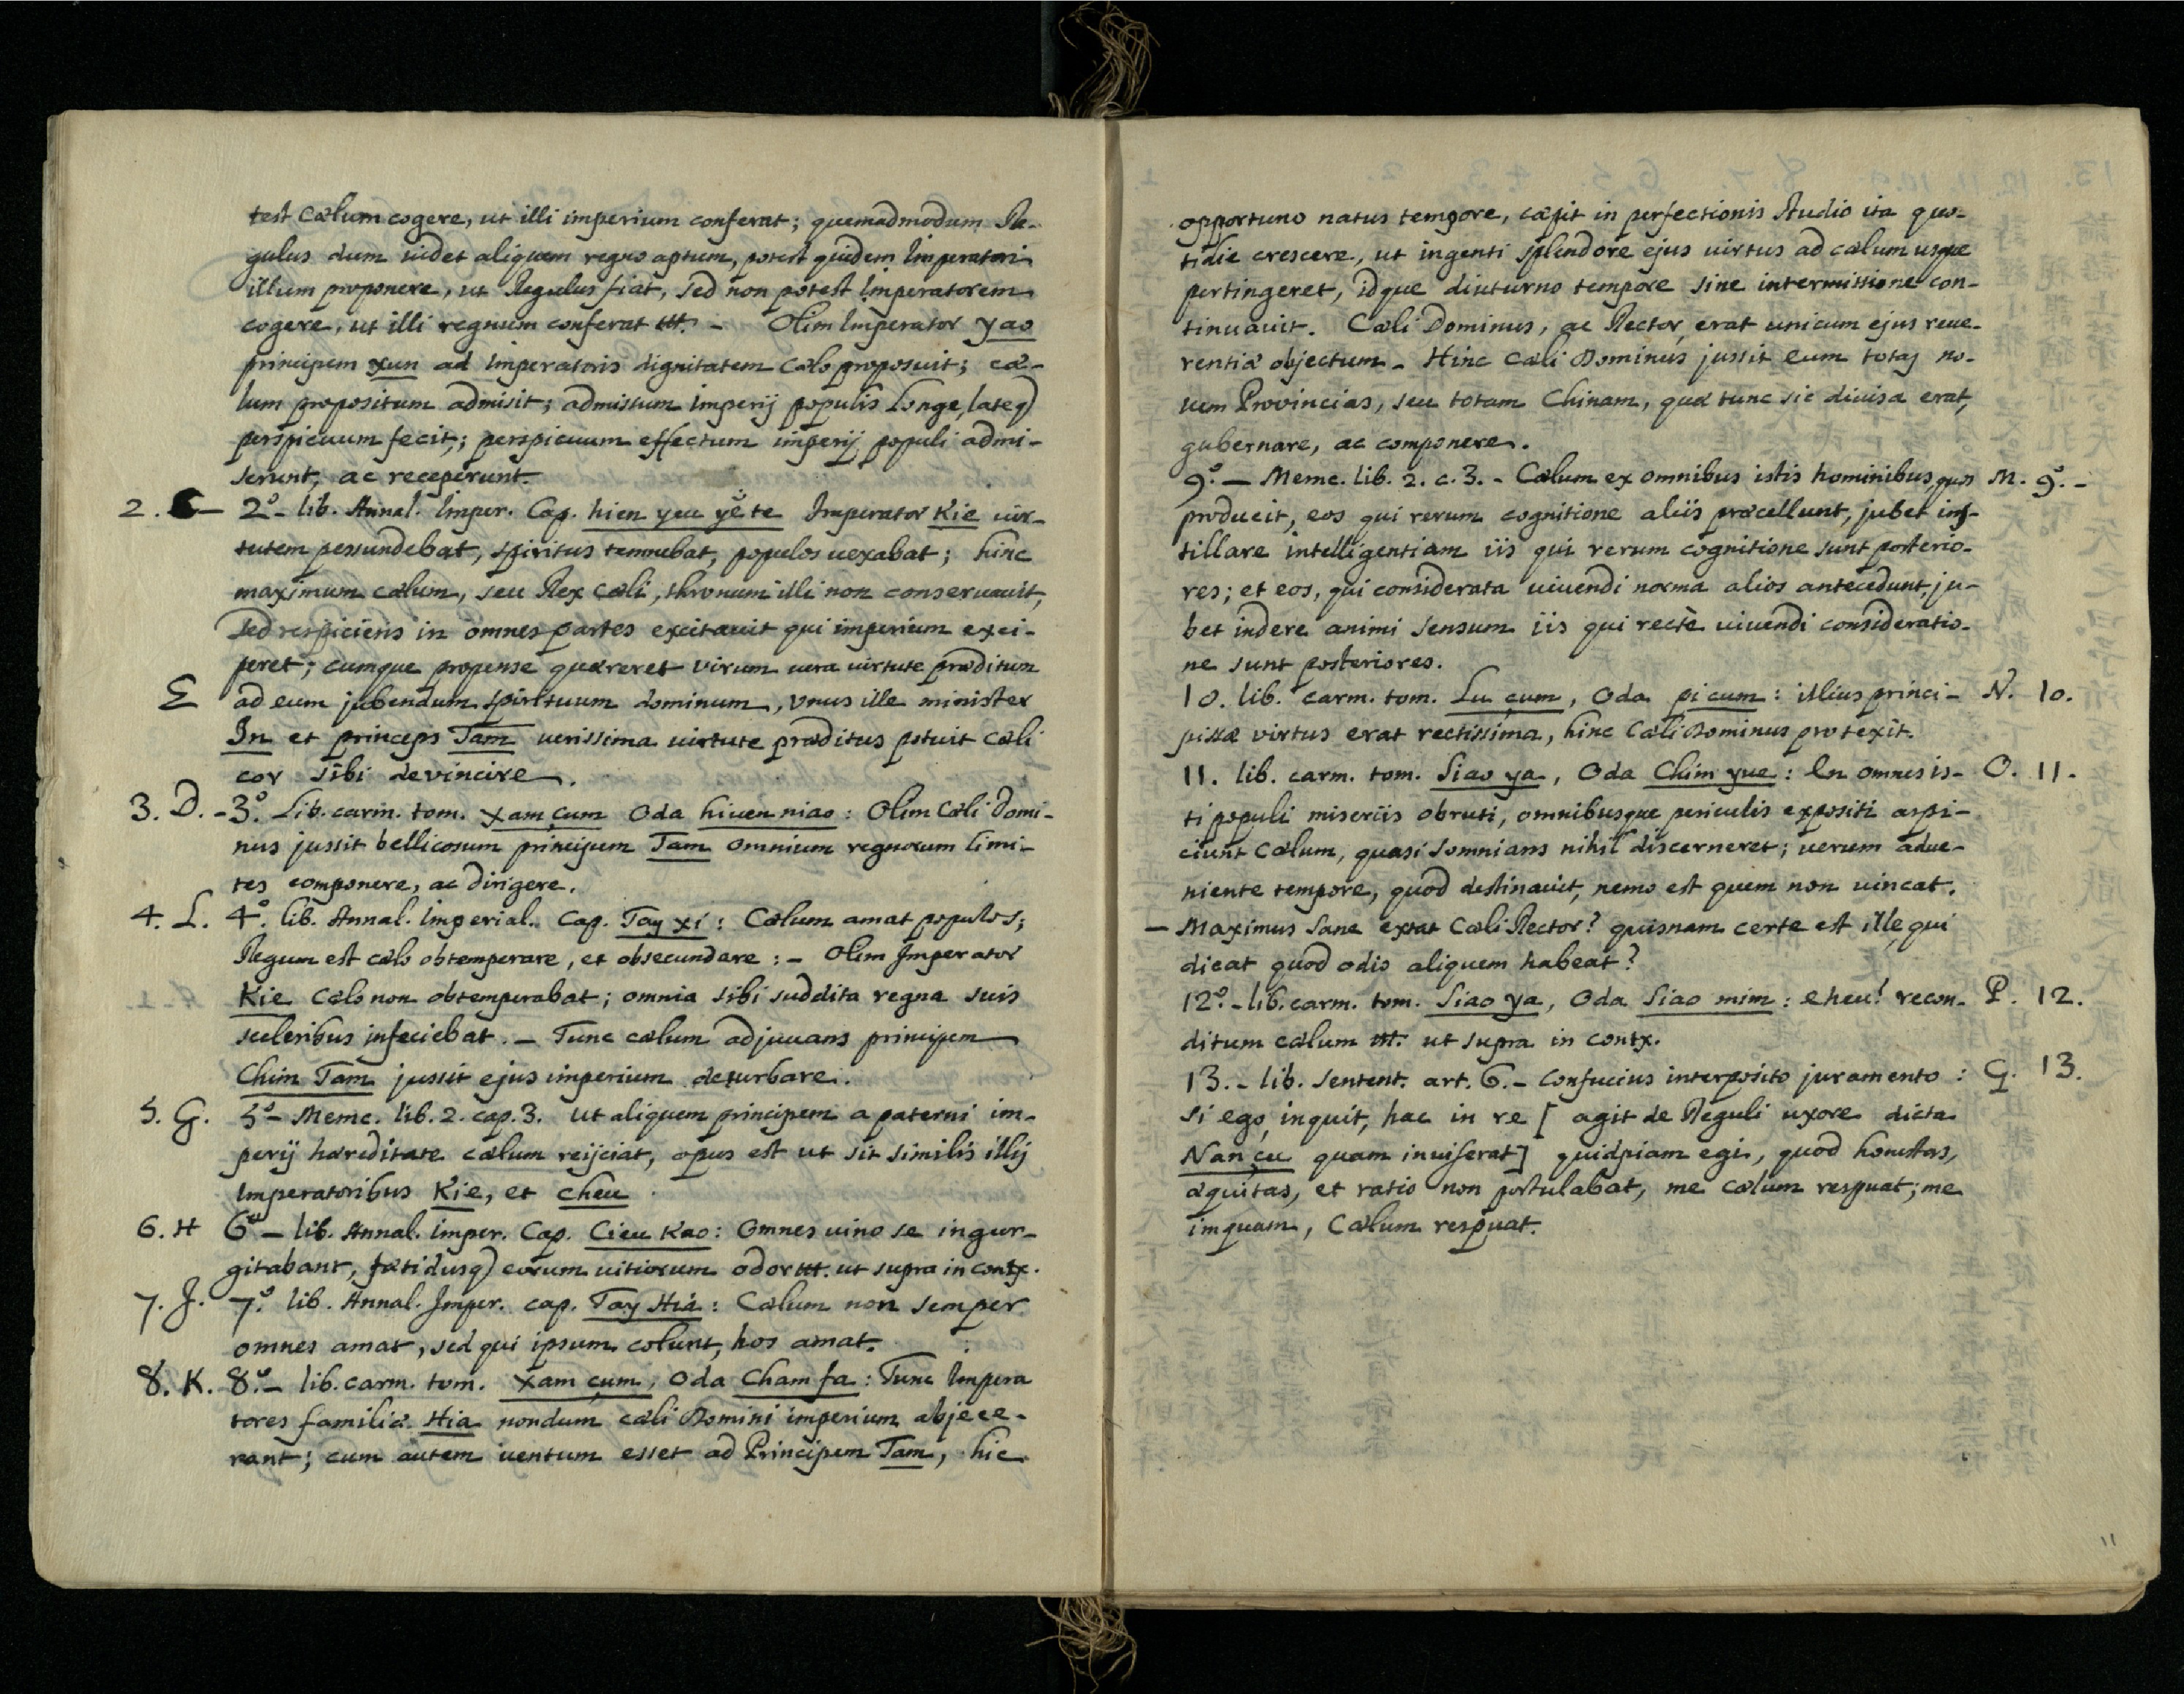 test Cælum cogere, ut illi imperium conferat; quemadmodum Re-
gulus dum videt aliquem regno aptum, potest quidem Imperatori
illum proponere, ut Regulus fiat, sed non potest Imperatorem
cogere, ut illi regnum conferat ttt. - Olim Imperator yao
principem xun ad Imperatoris dignitatem Cælo proposuit; cæ-
lum propositum admisit; admissum Imperij populis longe, lateq)
perspicuum fecit; perspicuum effectum imperij populi admi-
serunt, ac receperunt.
2. C - 2º- lib. Annal. Imper. Cap. hien yeu yĕ te Imperator Kie vir-
tutem pessundebat, spiritus temnebat, populos vexabat; hinc
maximum cælum, seu Rex Cæli, thronum illi non conservavit,
sed respiciens in omnes partes excitavit qui imperium exci-
peret; cumque propense quæreret virum vera virtute præditum
E ad eum jubendum spirituum dominum, vnus ille minister
In et princeps Tam verissima virtute præditus potuit cæli
cor sibi devincire.
3. D. - 3º. Lib. carm. tom. xam çum Oda hiuen niao: Olim Cæli Domi-
nus jussit bellicosum principem Tam omnium regnorum limi-
tes componere, ac dirigere.
4. L. 4º. lib. Annal. Imperial. Cap. Tay xi: Cælum amat populos;
Regum est cælo obtemperare, et obsecundare: - Olim Imperator
Kie Cælo non obtemperabat; omnia sibi suddita regna suis
sceleribus inficiebat. - Tunc cælum adjuvans principem
Chim Tam jussit ejus imperium deturbare.
5. G. 5º- Memc. lib. 2. cap. 3. ut aliquem principem a paterni im-
perij hæreditate cælum reijciat, opus est ut sit similis illij
Imperatoribus Kie, et cheu
6. H 6º - lib. Annal. Imper. Cap. Cieu Kao: Omnes vino se ingur-
gitabant, fætidusq) eorum vitiorum odor ttt. ut supra in contx.
7. J. 7º. lib. Annal. Imper. cap. Tay Hia: Cælum non semper
omnes amat, sed qui ipsum colunt, hos amat.
8. K. 8º.- lib. carm. tom. xam çum, Oda Cham fa: Tunc Impera
tores familiæ Hia nondum cæli Domini imperium abjece-
rant; cum autem ventum esset ad Principem Tam, hic
opportuno natus tempore, cæpit in perfectionis studio ita quo-
tidie crescere, ut ingenti splendore ejus virtus ad cælum usque
pertingeret, idque diuturno tempore sine intermissione con-
tinuavit. Cæli Dominus, ac Rector, erat unicum ejus reve-
rentiæ objectum - Hinc Cæli Dominus jussit eum totas no-
vem Provincias, seu totam Chinam, quæ tunc sic divisa erat,
gubernare, ac componere.
9º. - Memc. lib. 2. c. 3. - Cælum ex omnibus istis hominibus, quos M. 9º. -
producit, eos qui rerum cognitione aliis præcellunt, jubet ins-
tillare intelligentiam iis qui rerum cognitione sunt posterio-
res; et eos, qui considerata vivendi norma alios antecedunt, ju-
bet indere animi sensum iis qui rectè vivendi consideratio-
ne sunt posteriores.
10. lib. carm. tom. Lu çum, Oda pi cum: illius princi- N. 10.
pissæ virtus erat rectissima, hinc Cæli Dominus protexit.
11. lib. carm. tom. Siao ya, Oda Chim yue: En omnes is- O. 11.
ti populi miseriis obruti, omnibusque periculis expositi aspi-
ciunt Cælum, quasi somnians nihil discerneret; verum adve-
niente tempore, quod destinavit, nemo est quem non vincat.
- Maximus sane extat Cæli Rector? quisnam certe est ille qui
dicat quod odio aliquem habeat?
12º. - lib. carm. tom. Siao ya, Oda Siao mim: eheu! recon- P. 12.
ditum cælum ttt. ut supra in contx.
13. - lib. sentent. art. 6. - Confucius interposito juramento: G. 13.
si ego, inquit, hac in re [ agit de Reguli uxore dicta
Nan çu quam inviserat] quidpiam egi, quod honestas,
æquitas, et ratio non postulabat, me cælum respuat; me
imquam, Cælum respuat.
11